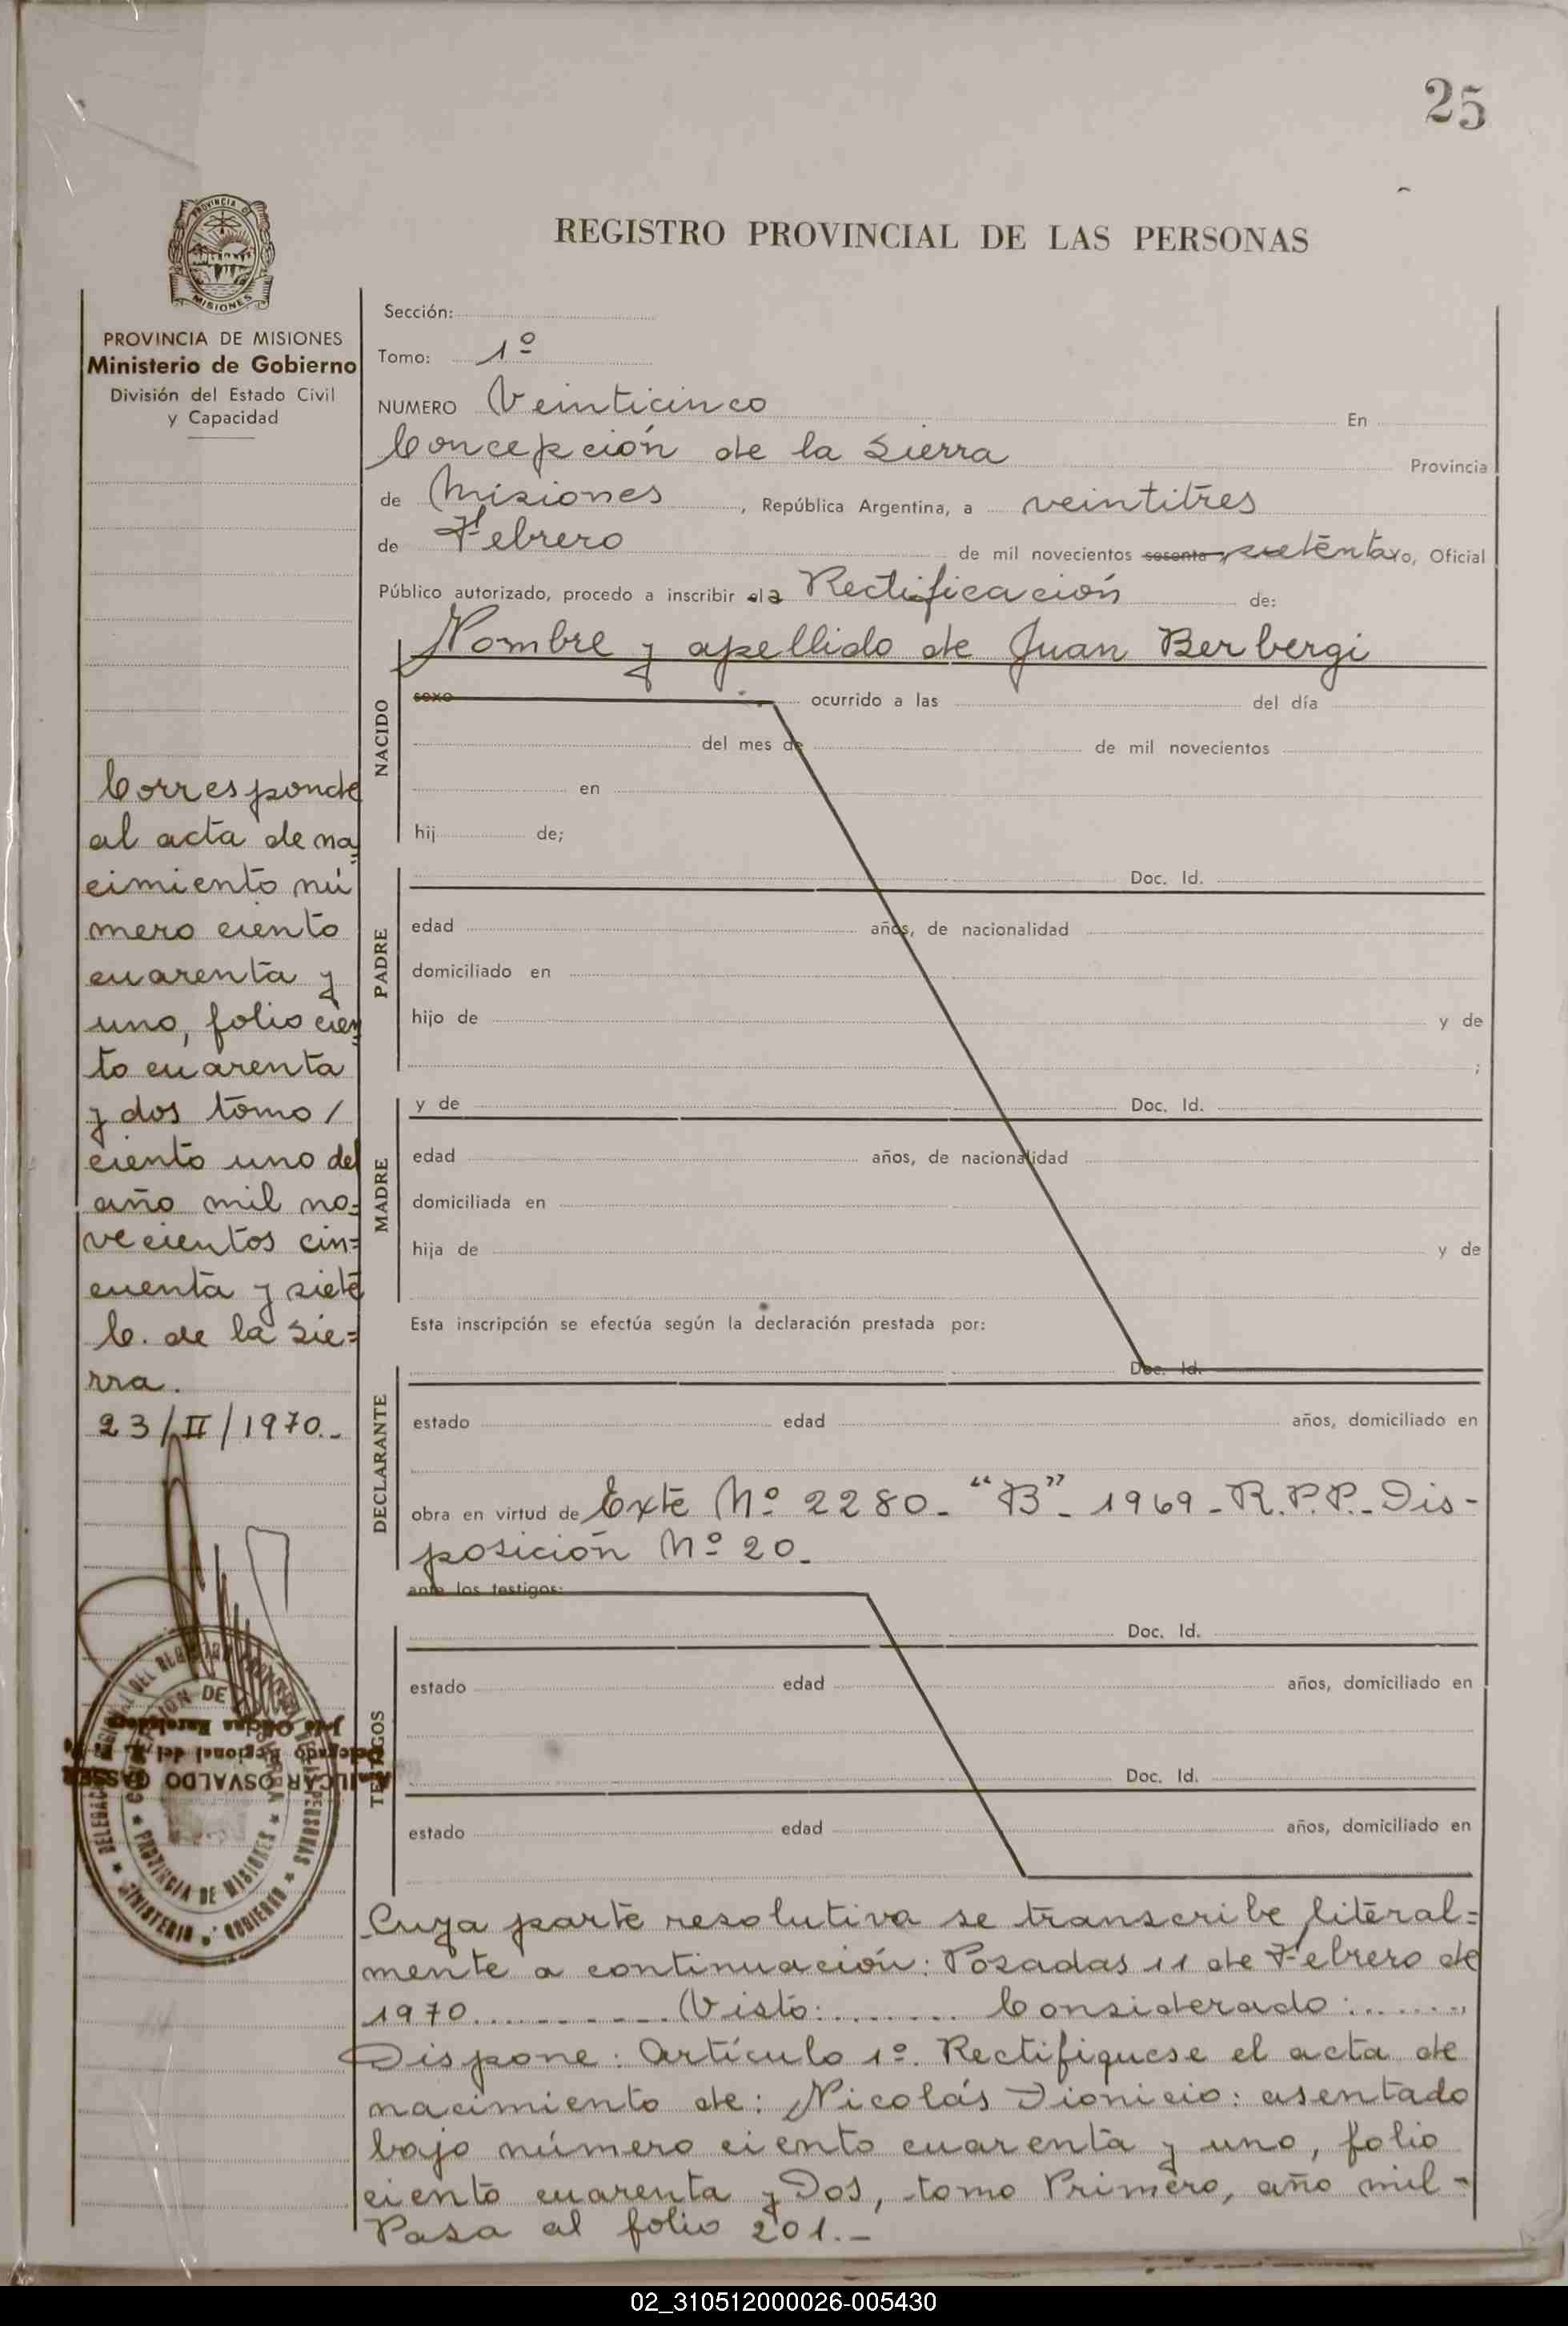 25
PROVINCIA DE
MISIONES
REGISTRO PROVINCIAL DE LAS PERSONAS
PROVINCIA DE MISIONES
Ministerio de Gobierno
División del Estado Civil
y Capacidad
Sección:
Tomo: 1º
NUMERO Veinticinco En
Concepción de la Sierra Provincia
de Misiones, República Argentina, a veintitres
de Febrero de mil novecientos sesenta, setenta yo, Oficial
Público autorizado, procedo a inscribir la Rectificación de:
Nombre y apellido de Juan Berbergi
NACIDO
sexo ocurrido a las del día
del mes de de mil novecientos
en
hij de;
PADRE
Doc. Id.
edad años, de nacionalidad
domiciliado en
hijo de y de
;
MADRE
y de Doc. Id.
edad años, de nacionalidad
domiciliada en
hija de y de
Esta inscripción se efectúa según la declaración prestada por:
DECLARANTE
Doc. Id.
estado edad años, domiciliado en
obra en virtud de Exte Nº 2280- "B"- 1969-R.P.P.-Dis-
posición Nº 20-
ante los testigos:
TESTIGOS
Doc. Id.
estado edad años, domiciliado en
Doc. Id.
estado edad años, domiciliado en
Cuya parte resolutiva se transcribe literal=
mente a continuación: Posadas 11 de Febrero de
1970........... Visto:........ Considerado:.......
Dispone: Artículo 1º. Rectifiquese el acta de
nacimiento de: Nicolás Dionicio: asentado
bajo número ciento cuarenta y uno, folio
ciento cuarenta y Dos, tomo Primero, año mil-
Pasa al folio 201.-
Corresponde
al acta de na=
cimiento nú
mero ciento
cuarenta y
uno, folio cien=
to cuarenta
y dos tomo /
ciento uno del
año mil no=
vecientos cin=
cuenta y siete
C. de la Sie=
rra.
23/II/1970.-
AMILCAR OSVALDO GASSER
Delegado Regional del R. P. P.
PROVINCIA DE MISIONES
MINISTERIO GOBIERNO
02_310512000026-005430